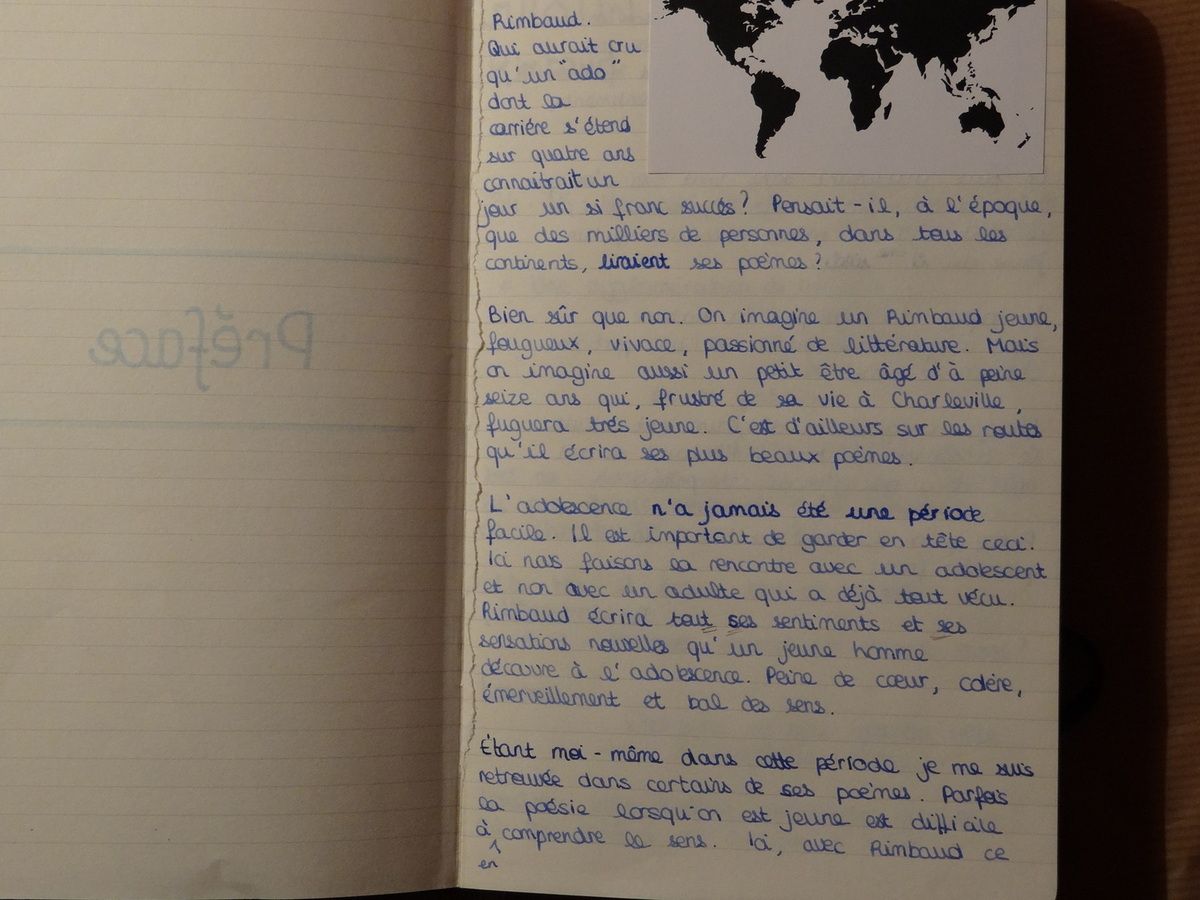 Préface
Rimbaud.
Qui aurait cru
qu'un "ado"
dont la
carrière s'étend
sur quatre ans
connaitrait un
jour un si franc succés? Pensait-il, à l'époque,
que des milliers de personnes, dans tous les
continents, liraient ses poèmes?
Bien sûr que non. On imagine un Rimbaud jeune,
fougueux, vivace, passionné de littérature. Mais
on imagine aussi un petit être âgé d'à peine
seize ans qui, frustré de sa vie à Charleville,
fuguera trés jeune. C'est d'ailleurs sur les routes
qu'il écrira ses plus beaux poèmes.
L'adolescence n'a jamais été une période
facile. Il est important de garder en tête ceci.
Ici nous faisons la rencontre avec un adolescent
et non avec un adulte qui a déjà tout vécu.
Rimbaud écrira tout ses sentiments et ses
sensations nouvelles qu'un jeune homme
découvre à l'adolescence. Peine de cœur, colère,
émerveillement et bal des sens.
Étant moi-même dans cette période je me suis
retrouvée dans certains de ses poèmes. Parfois
la poésie lorsqu'on est jeune est difficile
à en comprendre le sens. Ici, avec Rimbaud ce